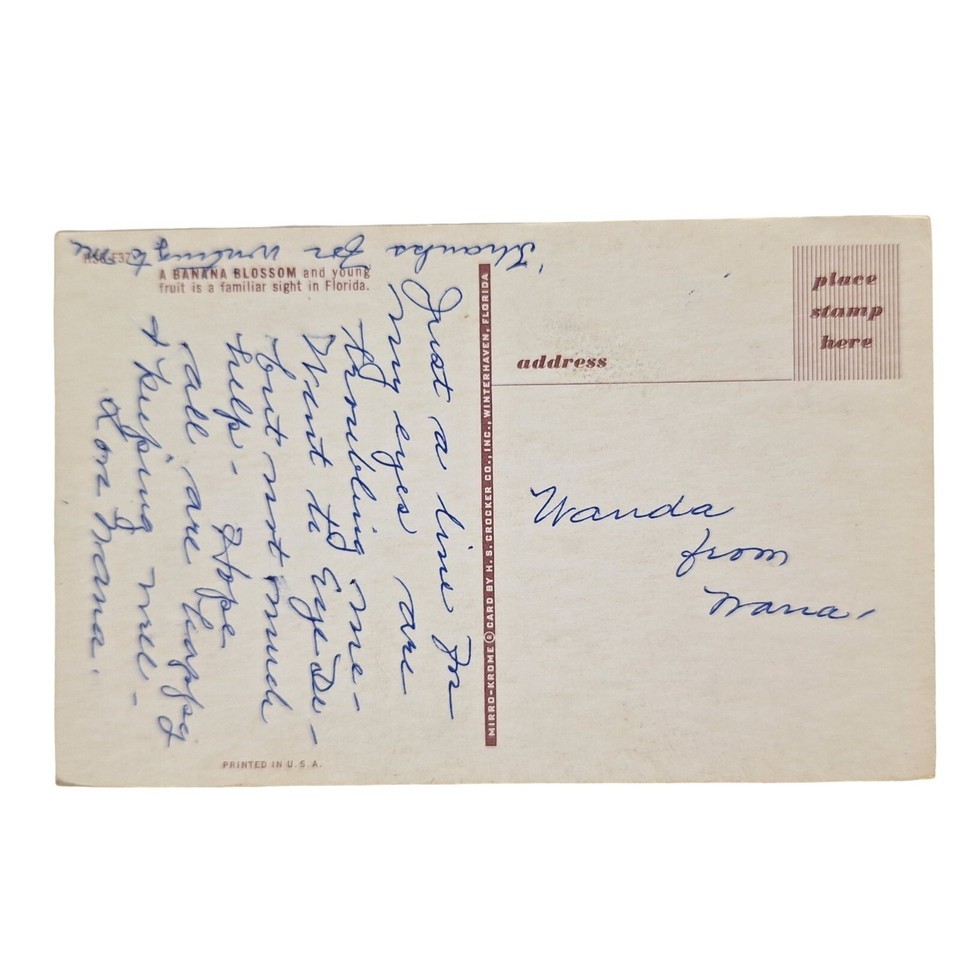 A BANANA BLOSSOM and young
fruit is a familiar sight in Florida.
Just a line for
my eyes are
throbbing me-
Went to Eye Dr-
but not much
help- Hope
all are happy
& keeping well-
Love Nana.
Thanks for writing to me
MIRRO-KROME® CARD BY H. S. CROCKER CO., INC., WINTERHAVEN, FLORIDA
PRINTED IN U. S. A.
place
stamp
here
address
Wanda
from
Nana.